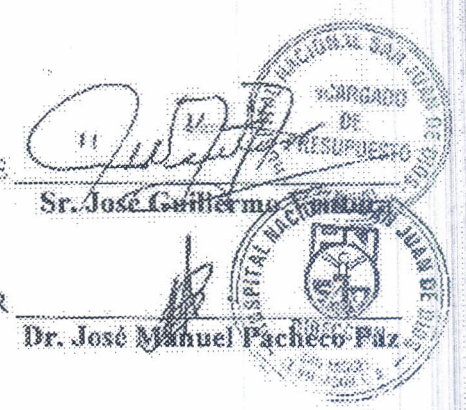 HOSPITAL NACIONAL SAN JUAN DE DIOS
ENCARGADO
DE
PRESUPUESTO
Sr. José Guillermo
HOSPITAL NACIONAL SAN JUAN DE DIOS
DIRECCION
Dr. José Manuel Pacheco Paz